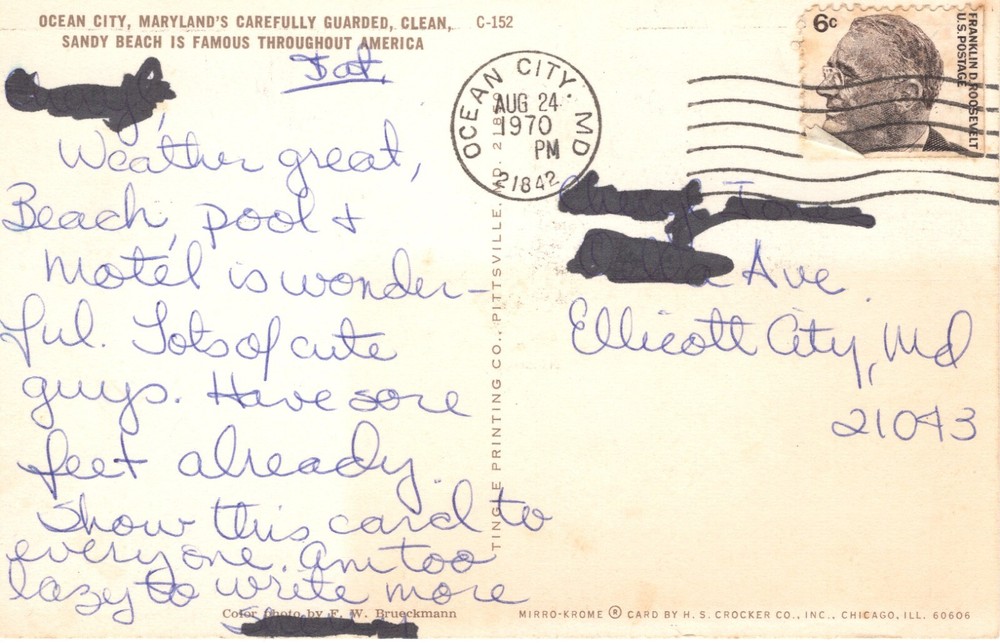 OCEAN CITY, MARYLAND'S CAREFULLY GUARDED, CLEAN, C-152
SANDY BEACH IS FAMOUS THROUGHOUT AMERICA
Sat.
Weather great,
Beach, pool +
Motel is wonder-
ful. Lots of cute
guys. Have sore
feet already.
Show this card to
everyone. Am too
lazy to write more
Color photo by F. W. Brueckmann
PRINTING CO., PITTSVILLE, MD. 21850
OCEAN CITY, MD
AUG 24
1970
PM
21842
6c
FRANKLIN D. ROOSEVELT
U.S. POSTAGE
Ave.
Ellicott City, Md
21043
MIRRO-KROME ® CARD BY H. S. CROCKER CO., INC., CHICAGO, ILL. 60606